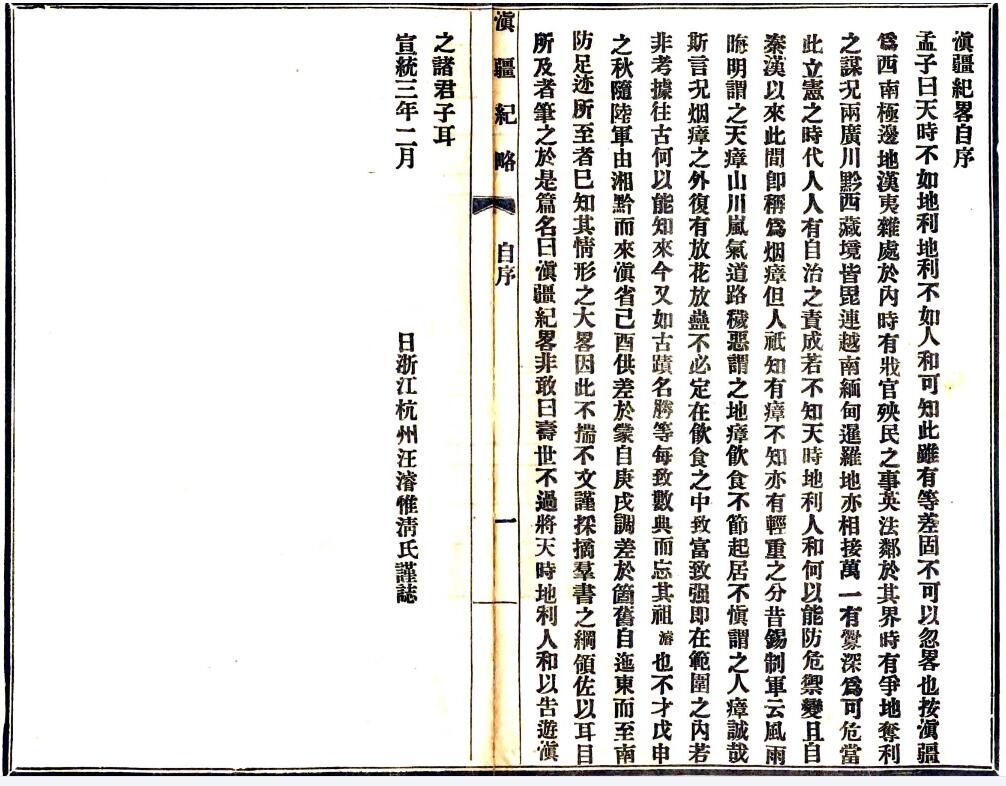 滇疆紀畧自序
孟子曰天時不如地利地利不如人和可知此雖有等差固不可以忽畧也按滇疆
爲西南極邊地漢夷雜處於內時有戕官殃民之事英法鄰於其界時有爭地奪利
之謀況兩廣川黔西藏境皆毘連越南緬甸暹羅地亦相接萬一有釁深爲可危當
此立憲之時代人人有自治之責成若不知天時地利人和何以能防危禦變且自
秦漢以來此間卽稱爲烟瘴但人祇知有瘴不知亦有輕重之分昔錫制軍云風雨
晦明謂之天瘴山川嵐氣道路穢惡謂之地瘴飲食不節起居不愼謂之人瘴誠哉
斯言況烟瘴之外復有放花放蠱不必定在飲食之中致富致强即在範圍之內若
非考據往古何以能知來今又如古蹟名勝等每致數典而忘其祖濬也不才戊申
之秋隨陸軍由湘黔而來滇省己酉供差於蒙自庚戌調差於箇舊自迤東而至南
防足迹所至者已知其情形之大畧因此不揣不文謹採摘羣書之綱領佐以耳目
所及者筆之於是篇名曰滇疆紀畧非敢曰壽世不過將天時地利人和以告遊滇
滇疆紀略
自序
一
之諸君子耳
宣統三年二月
日浙江杭州汪濬惟清氏謹誌